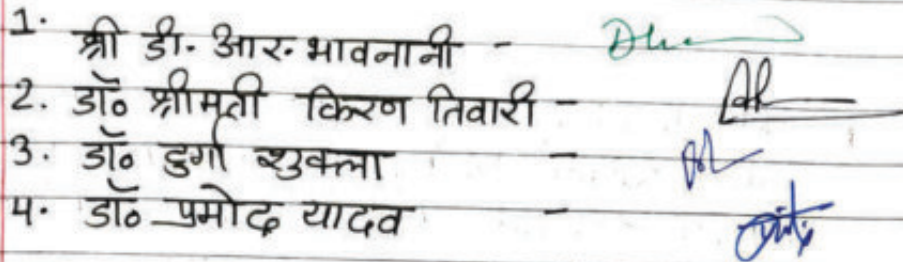 1. श्री डी. आर. भावनानी -
2. डॉ० श्रीमती किरण तिवारी -
3. डॉ० दुर्गा शुक्ला -
4. डॉ० प्रमोद यादव -